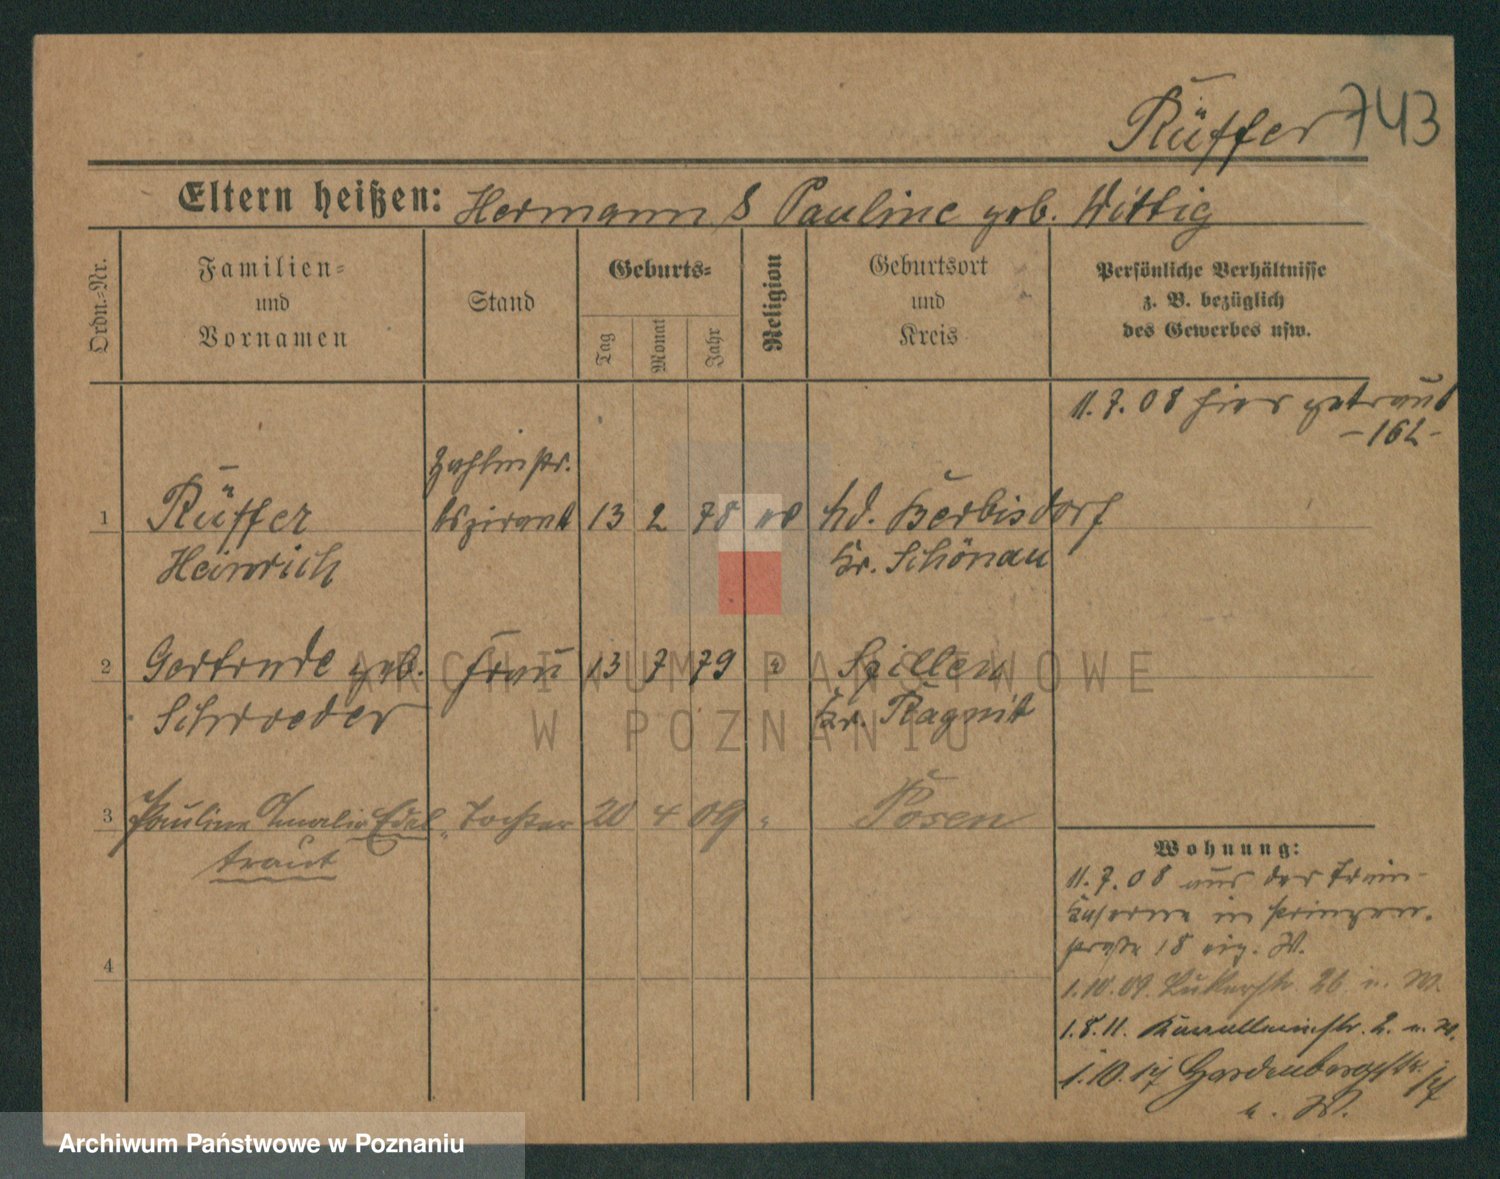 Rüffer 743
Eltern heißen: Hermann & Pauline geb. Wittig
Ordn.-Nr.
Familien-
und
Vornamen
Stand
Geburts-
Tag
Monat
Jahr
Religion
Geburtsort
und
Kreis
Persönliche Verhältnisse
z. B. bezüglich
des Gewerbes usw.
11.7.08 hier getraut
-162-
Zahlmstr.
1 Rüffer Aspirant 13 2 78 Kerbisdorf
Heinrich Kr. Schönau
2 Gertrude geb. Frau 13 7 79 " Spillen
Schroeder Kr. Ragnit
3 Pauline Amalie Edel- Tochter 20 4 09 " Posen
traut
4
Wohnung:
11.7.08 aus der Train-
Kaserne in Prinzen-
straße 18 eig. W.
1.10.09. 26 e. W.
1.8.11. 2. e. W.
1.10.17 Hardenbergstr.
e. W.
ARCHIWUM PAŃSTWOWE
W POZNANIU
Archiwum Państwowe w Poznaniu